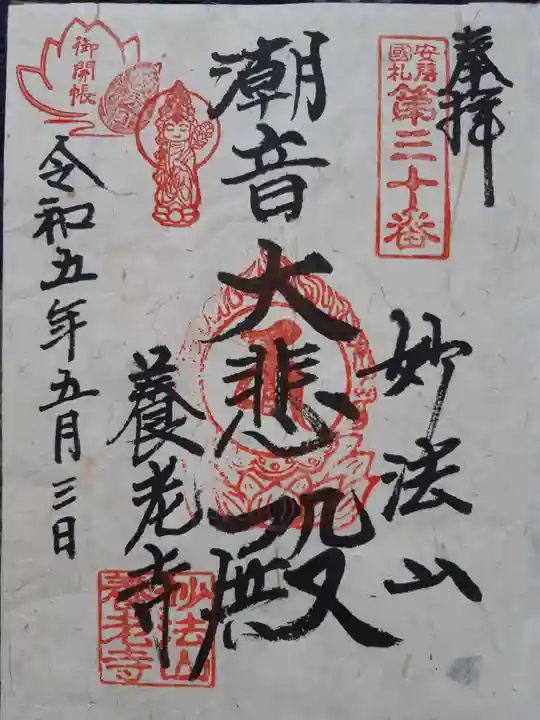 奉拝
安房
國札
第三十番
妙法山
潮音
大悲殿
養老寺
妙法山
養老寺
御開帳
令和五年五月三日